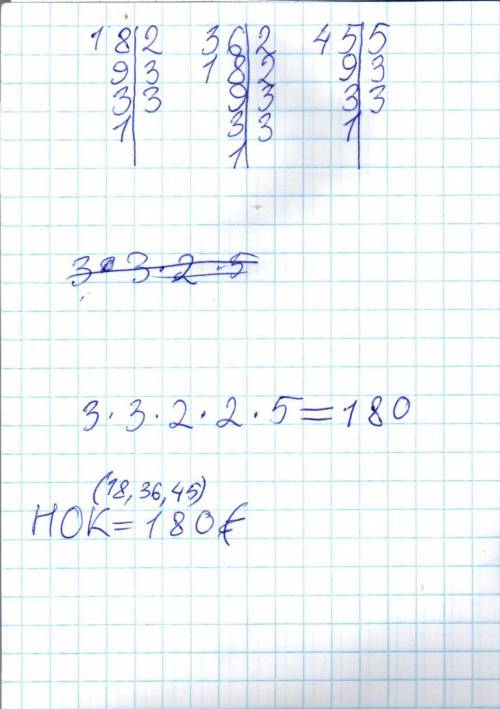 18|2 36|2 45|5
9|3 18|2 9|3
3|3 9|3 3|3
1| 3|3 1|
1|
3 · 3 · 2 · 5
3 · 3 · 2 · 2 · 5 = 180
(18, 36, 45)
НОК = 180